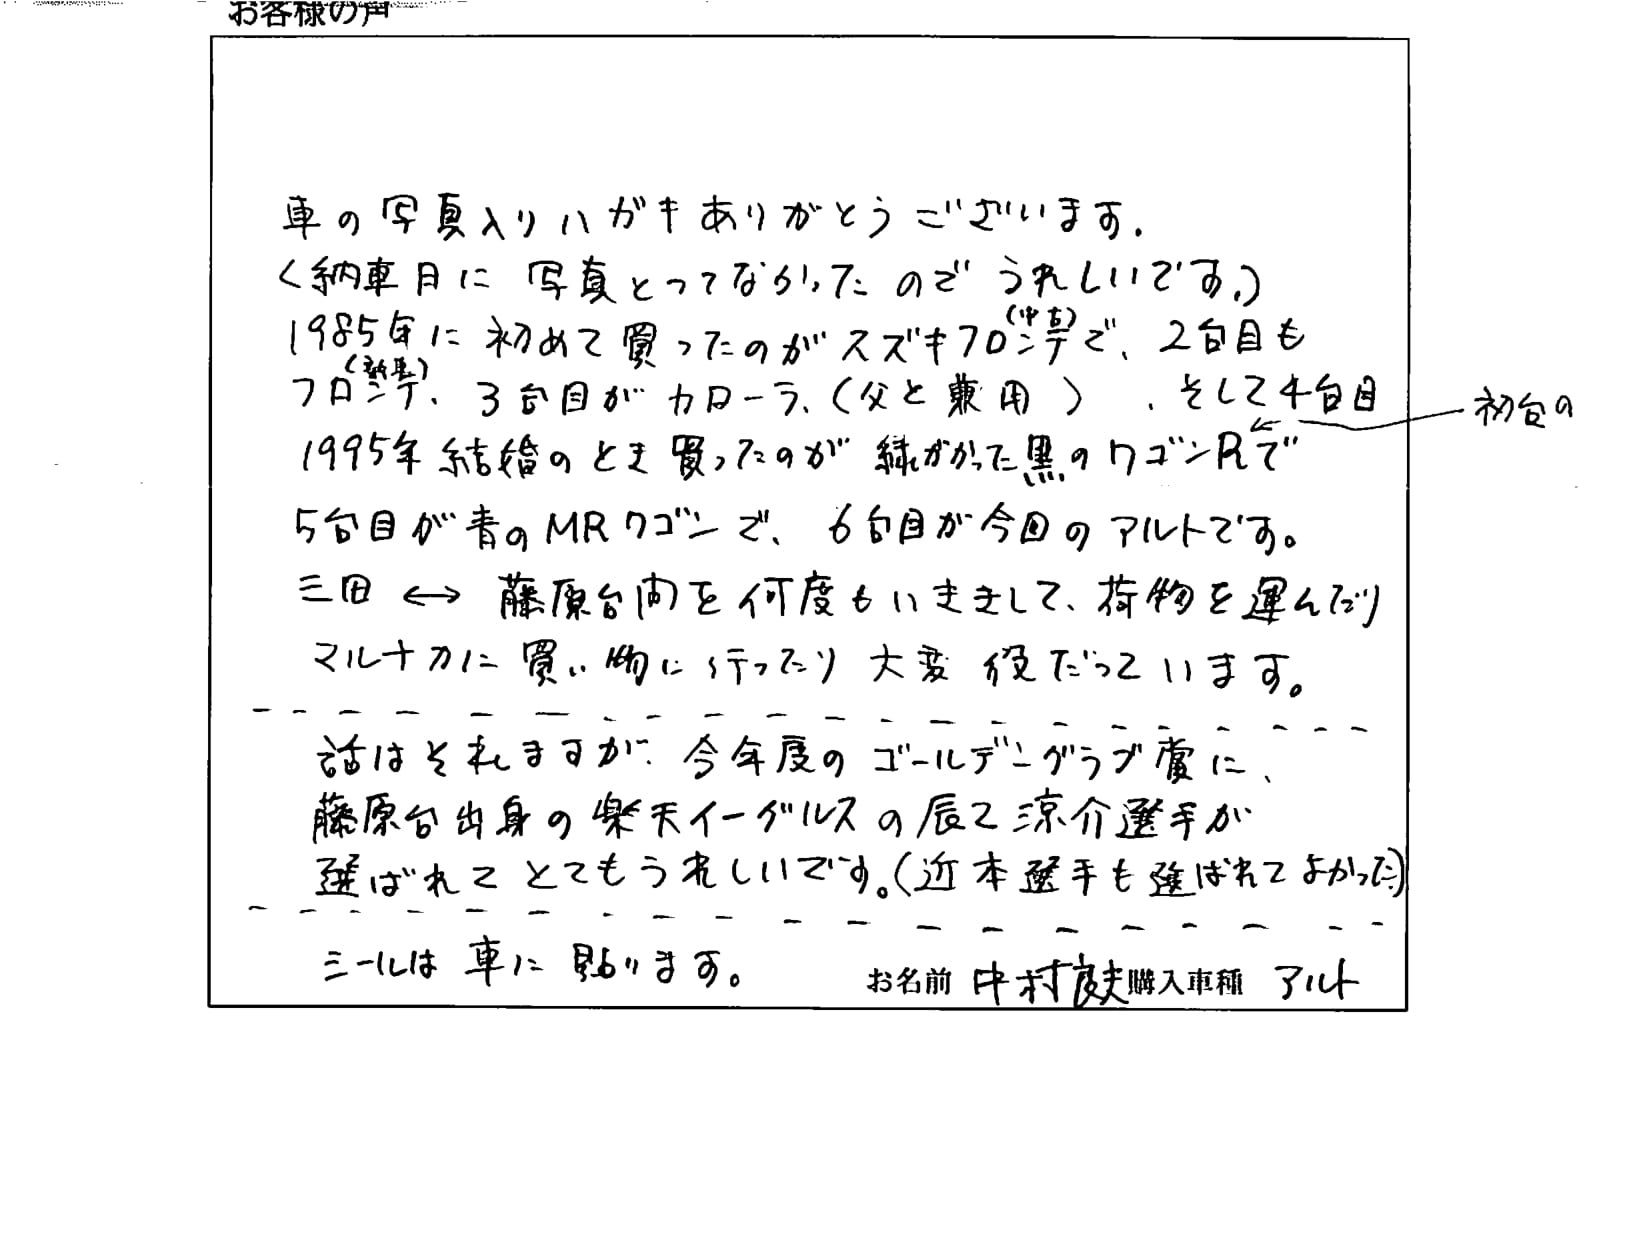 お客様の声
車の写真入りハガキありがとうございます.
(納車日に 写真とってなかったのでうれしいです。)
1985年に初めて買ったのがスズキフロンテ(中古)で、2台目も
フロンテ(新車)、3台目がカローラ、(父と兼用)、そして4台目
初台の
1995年結婚のとき買ったのが緑がかった黒のワゴンRで
5台目が青のMRワゴンで、6台目が今回のアルトです。
三田 ↔ 藤原台間を何度もいききして、荷物を運んだり
マルナカに買い物に行ったり大変役だっています。
話はそれますが、今年度のゴールデングラブ賞に、
藤原台出身の楽天イーグルスの辰己涼介選手が
選ばれてとてもうれしいです。(近本選手も選ばれてよかった)
シールは車に貼ります。
お名前 中村 購入車種 アルト